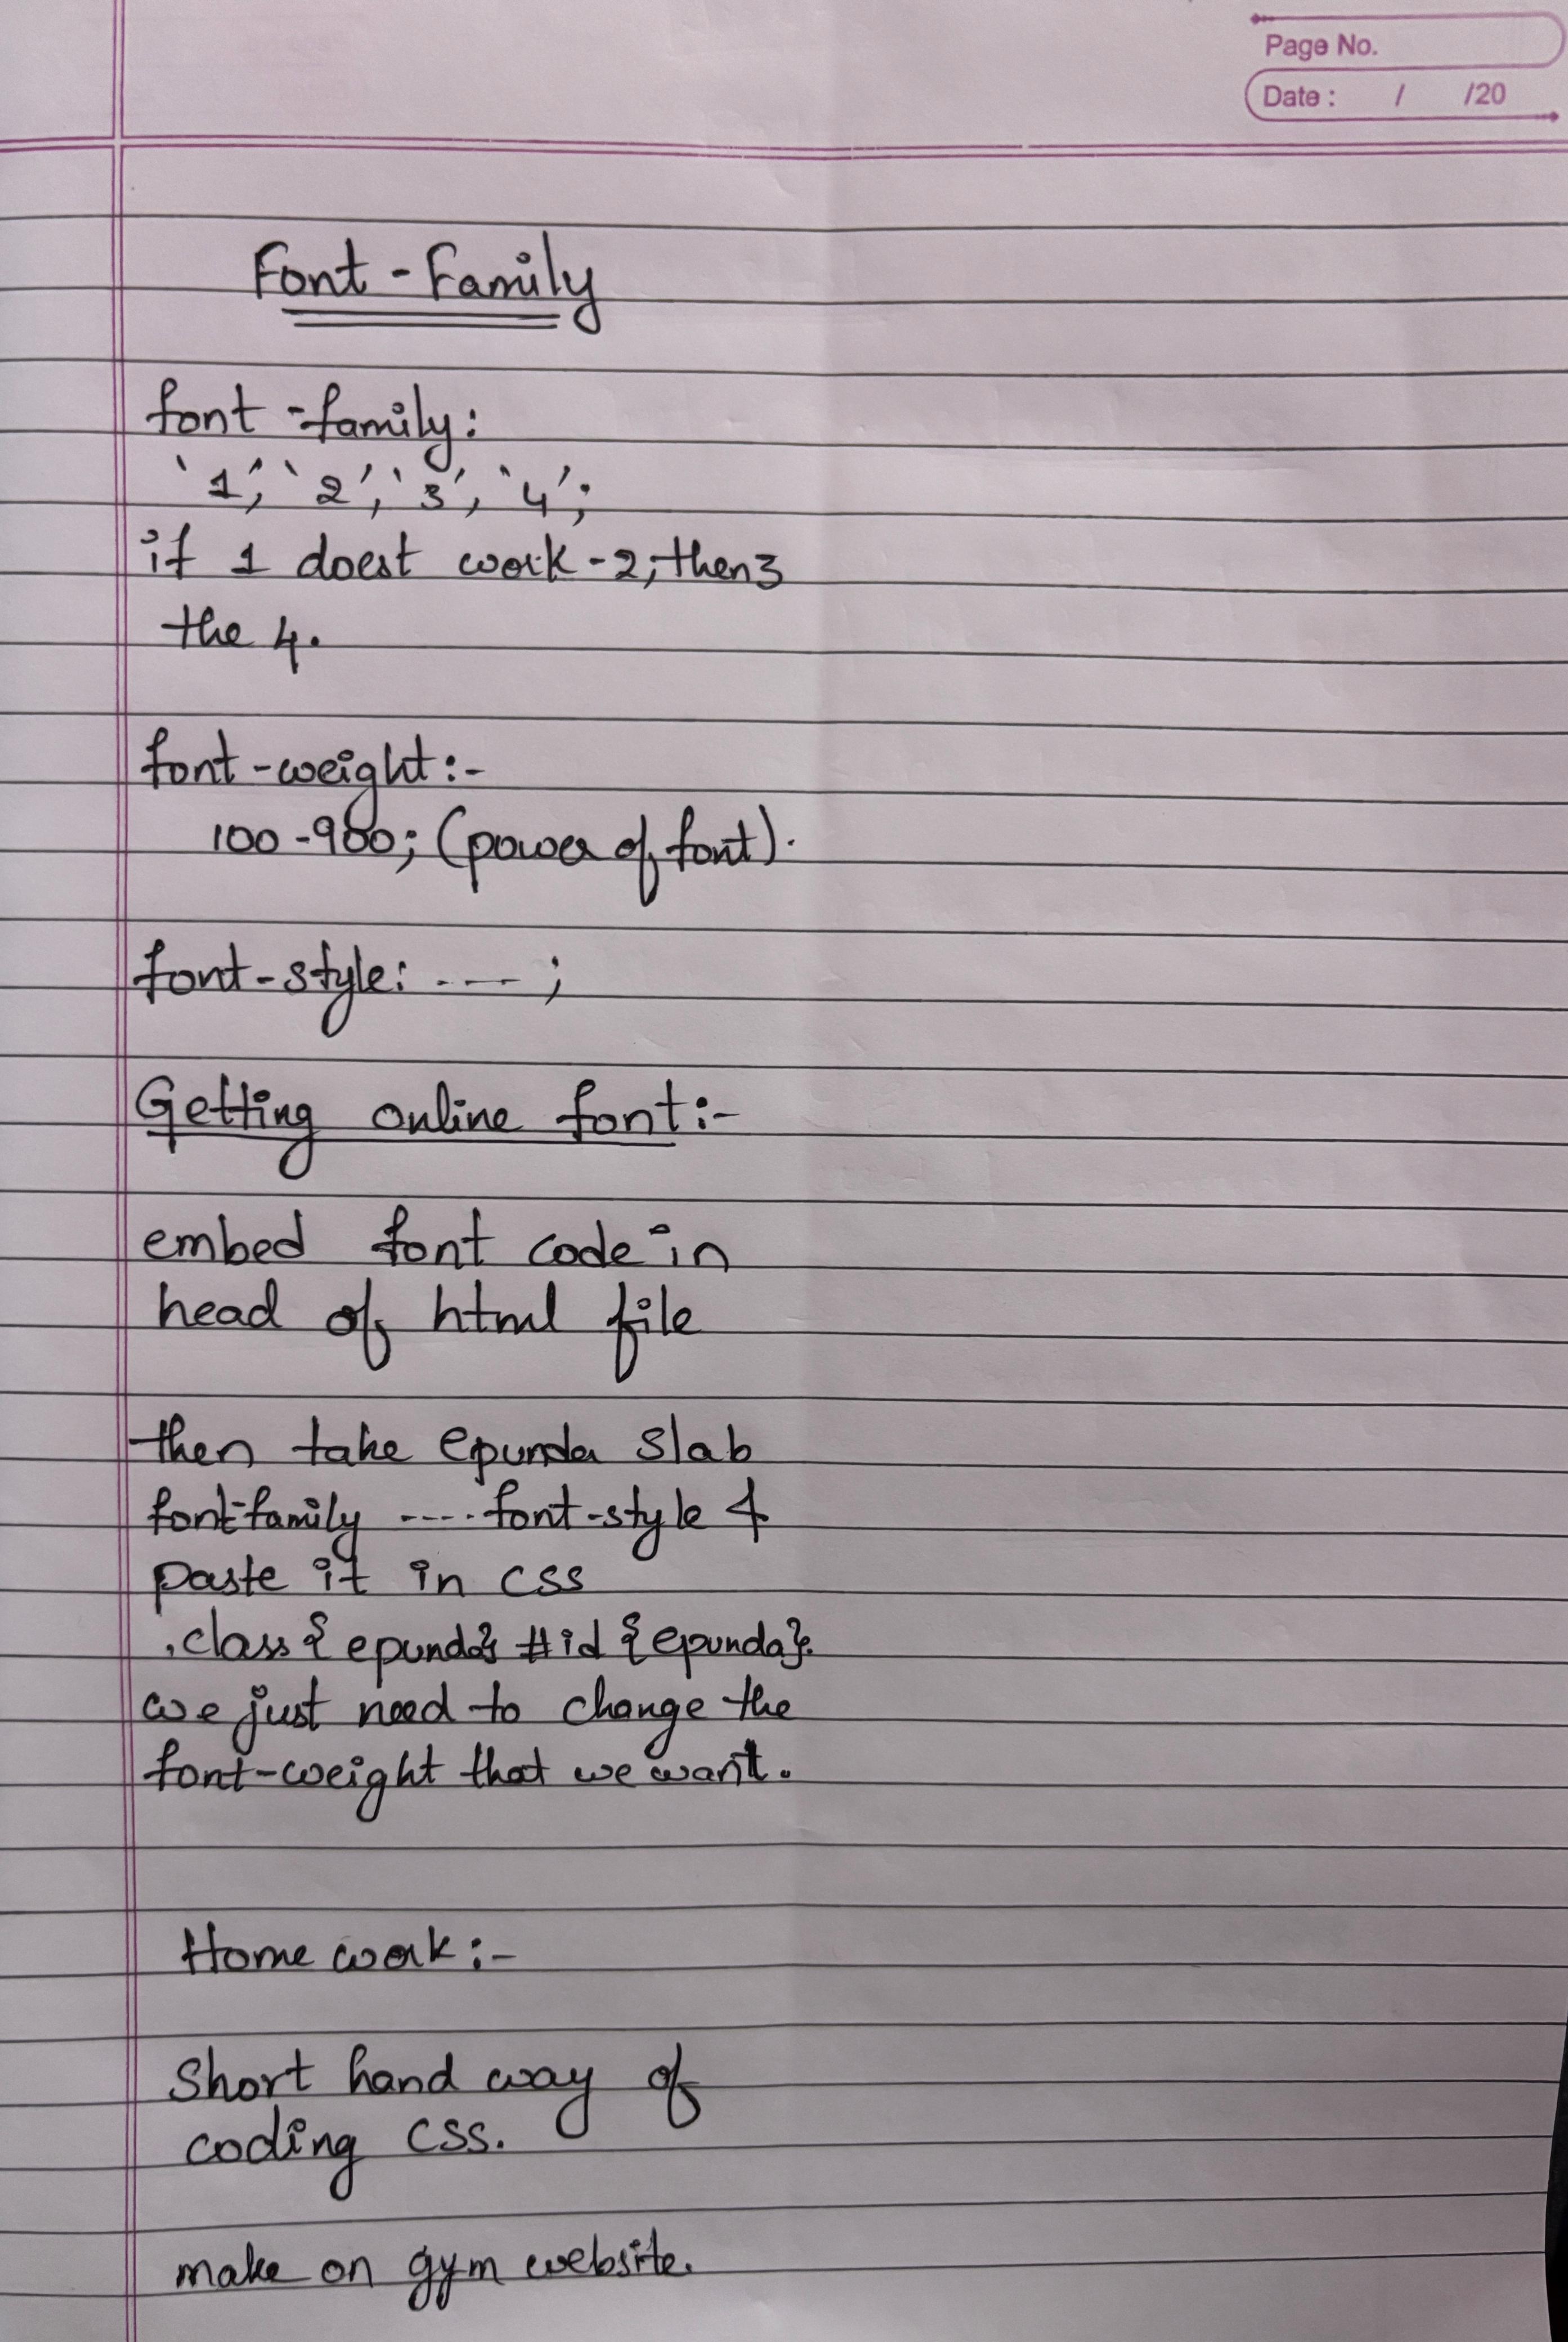 Page No.
Date : / /20
Font - Family
font - family:
'1', '2', '3', '4';
if 1 doest work - 2, then 3
the 4.
font - weight :-
100 - 900; (power of font).
font - style: ---- ;
Getting online font :-
embed font code in
head of html file
then take epunda slab
font-family ---- font-style &
paste it in css
.class { epunda} #id { epunda}.
we just need to change the
font-weight that we want.
Home work :-
Short hand way of
coding css.
make on gym website.